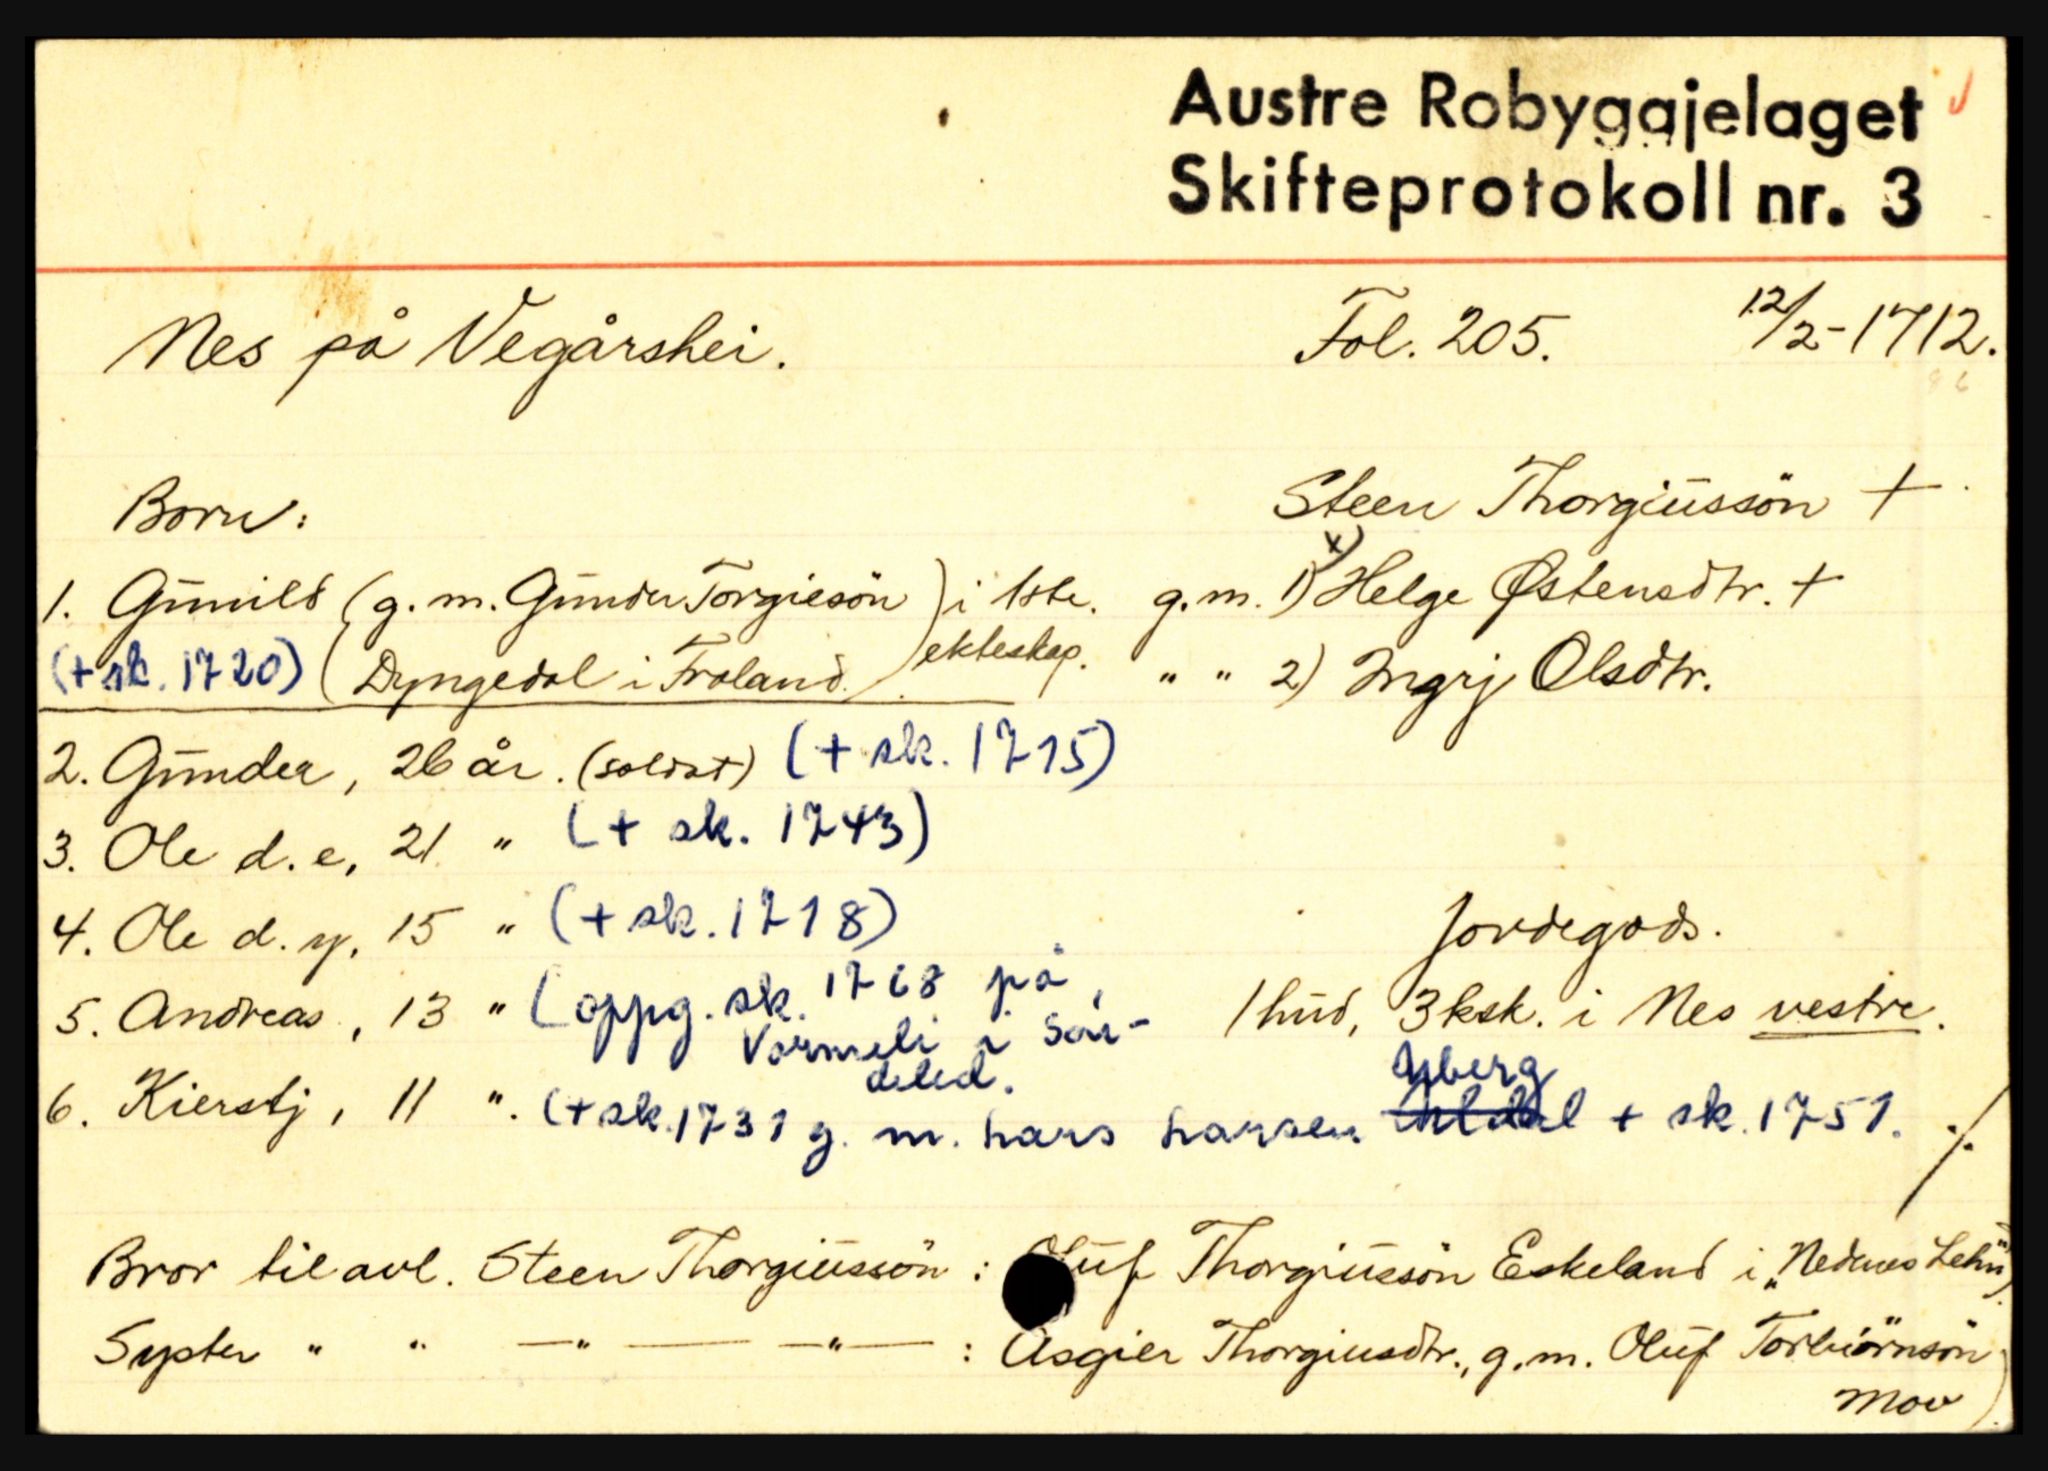 Austre Robyggjelaget
Skifteprotokoll nr. 3
Nes på Vegårshei. Fol. 205. 12/2-1712.
Steen Thorgiussön +
Born:
1. Gunild (g.m. Gunder Torgiesön) i 1ste. g.m. 1) x) Helge Østensdtr. +
(+ sk. 1720) (Dyngedal i Froland.) ekteskap. " " 2) Ingrj Olsdtr.
2. Gunder, 26 år. (soldat) (+ sk. 1715)
3. Ole d.e, 21 " (+ sk. 1743)
4. Ole d.y, 15 " (+ sk. 1718)
Jordegods.
5. Andreas, 13 " (oppg. sk. 1768 på
Vormeli i Søn-
deled.
1 hud, 3 ksk. i Nes vestre.
Yberg
6. Kierstj, 11 ". (+ sk. 1731 g. m. hans hansen + sk. 1751. ./.
Bror til avl. Steen Thorgiussön: Oluf Thorgiussön Eskeland i "Nednes Lehn"
Syster " " —"— —"— : Asgier Thorgiusdtr., g.m. Oluf Torbiörnsön
Mov